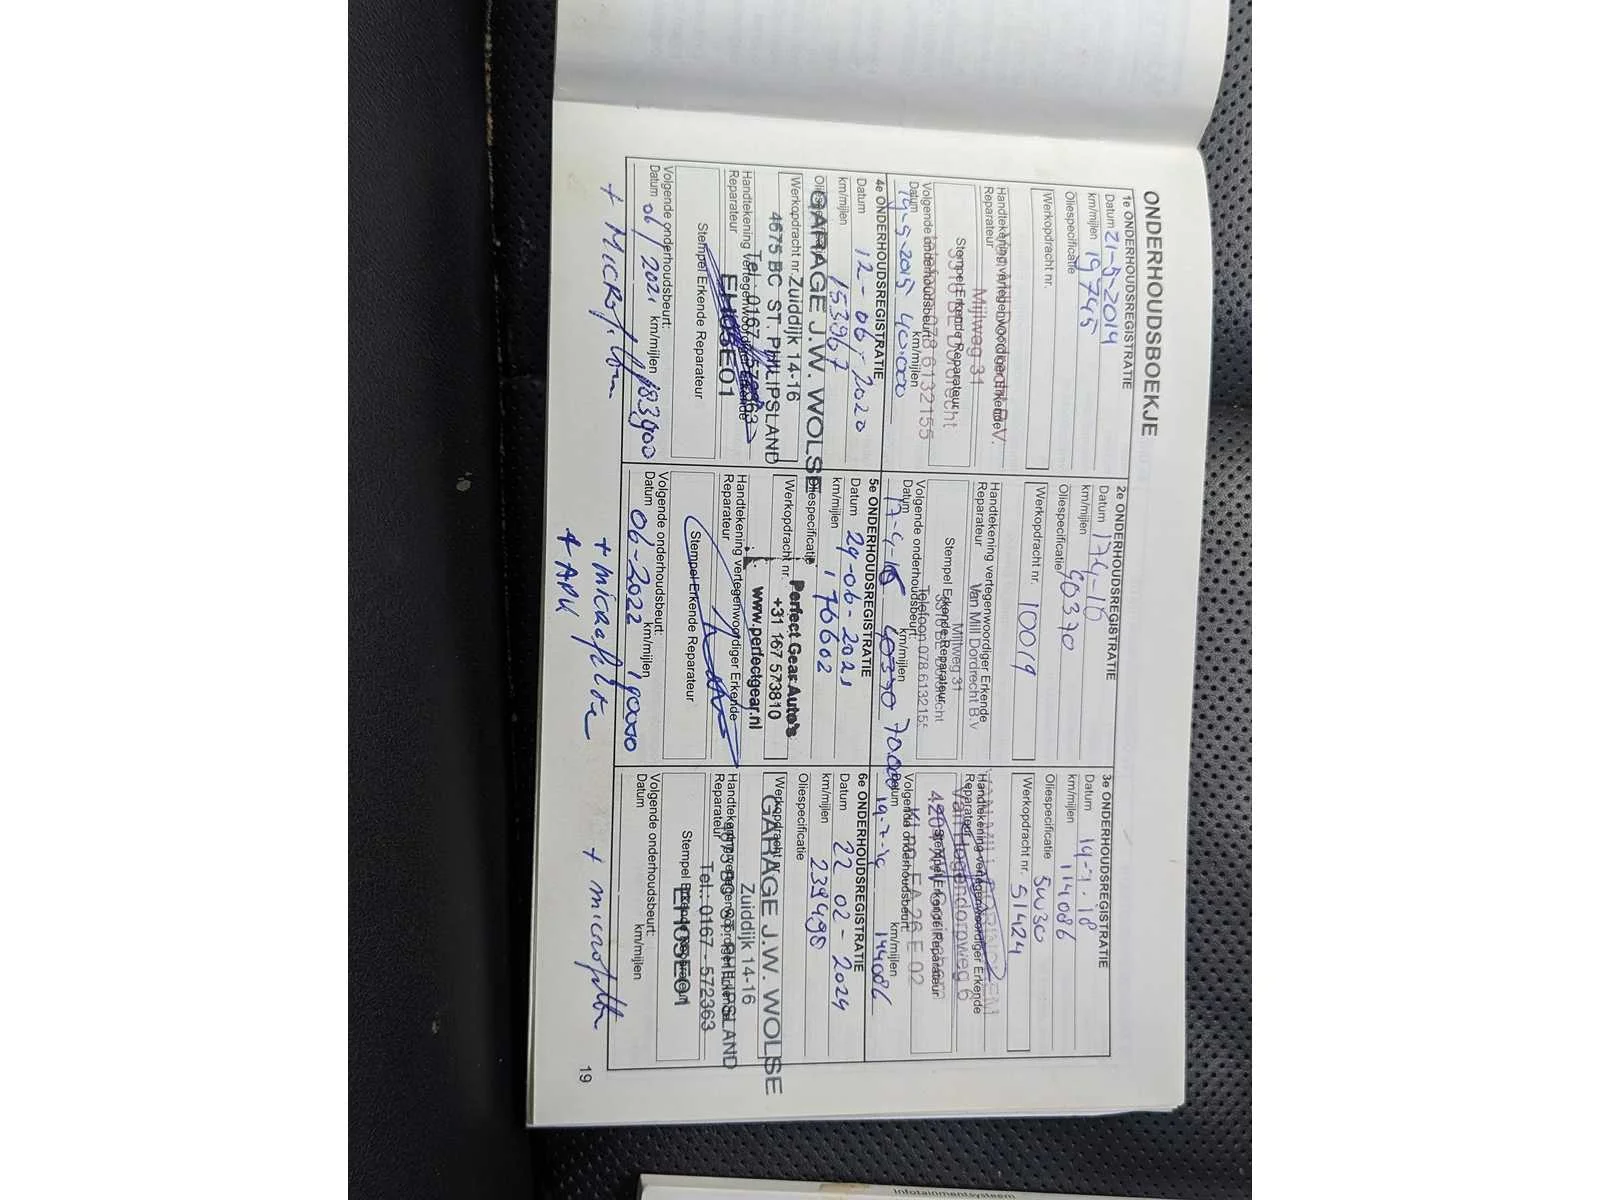 ONDERHOUDSBOEKJE
1e ONDERHOUDSREGISTRATIE
Datum 21-5-2014
km/mijlen 19745
Oliespecificatie
Werkopdracht nr.
Handtekening vertegenwoordiger Erkende
Reparateur
Mijlweg 31
Stempel Erkende Reparateur
Volgende onderhoudsbeurt:
Datum km/mijlen
19-5-2015 40.000
2e ONDERHOUDSREGISTRATIE
Datum
km/mijlen 40370
Oliespecificatie
Werkopdracht nr. 10019
Handtekening vertegenwoordiger Erkende
Reparateur
Van Mill Dordrecht B.V
Mijlweg 31
Stempel Erkende Reparateur
Telefoon 078 613215
Volgende onderhoudsbeurt:
Datum km/mijlen
70.000
3e ONDERHOUDSREGISTRATIE
Datum 19-7-18
km/mijlen 114086
Oliespecificatie 5W30
Werkopdracht nr. 51424
Handtekening vertegenwoordiger Erkende
Reparateur
Van Hogendorpweg 6
Stempel Erkende Reparateur
Volgende onderhoudsbeurt:
Datum km/mijlen
144086
4e ONDERHOUDSREGISTRATIE
Datum 12-06-2020
km/mijlen 153967
Oliespecificatie
GARAGE J.W. WOLSE
Werkopdracht nr.
Zuiddijk 14-16
4675 BC ST. PHILIPSLAND
Handtekening vertegenwoordiger Erkende
Reparateur
Tel.: 0167-572363
EH0SE01
Stempel Erkende Reparateur
Volgende onderhoudsbeurt:
Datum 06/2021 km/mijlen 183900
+ Microfilter
5e ONDERHOUDSREGISTRATIE
Datum 29-06-2021
km/mijlen 176602
Oliespecificatie
Werkopdracht nr.
Perfect Gear Auto's
+31 167 573810
www.perfectgear.nl
Handtekening vertegenwoordiger Erkende
Reparateur
Stempel Erkende Reparateur
Volgende onderhoudsbeurt:
Datum km/mijlen
06-2022 190000
+ microfilter
+ APK
6e ONDERHOUDSREGISTRATIE
Datum 22 02-2024
km/mijlen 239498
Oliespecificatie
Werkopdracht nr.
GARAGE J.W. WOLSE
Zuiddijk 14-16
4675 BC ST. PHILIPSLAND
Handtekening vertegenwoordiger Erkende
Reparateur
Tel.: 0167 - 572363
Stempel Erkende Reparateur
EH0SE01
Volgende onderhoudsbeurt:
Datum km/mijlen
+ microfilter
19
Infotainmentsysteem